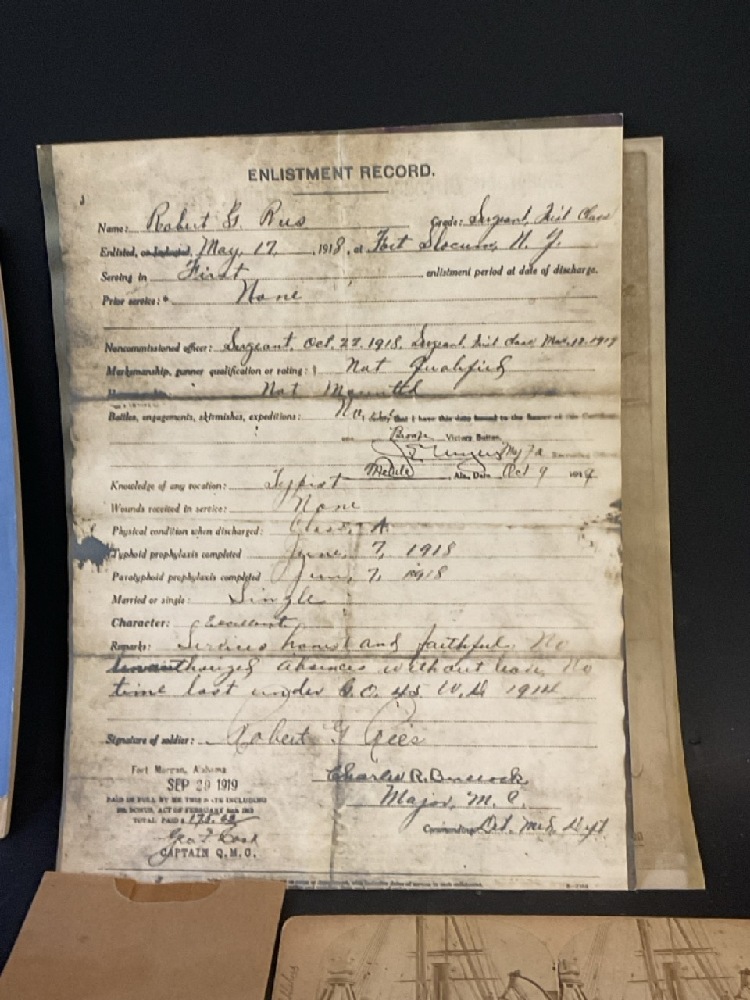 ENLISTMENT RECORD.
Name: Robert G. Rees Grade: Sergeant, First Class
Enlisted, or Inducted, May, 17, 1918, at Fort Slocum, N. Y.
Serving in First enlistment period at date of discharge.
Prior service:* None
Noncommissioned officer: Sergeant. Oct. 22. 1918, Sergeant, First Class, Mar. 1919
Marksmanship, gunner qualification or rating: Not Qualified
Not Mounted
Battles, engagements, skirmishes, expeditions: None
that I have this date issued to the
Bronze Victory Button.
Mobile, Ala., Date Oct 9 1919
Knowledge of any vocation: Typist
Wounds received in service: None
Physical condition when discharged: Class A
Typhoid prophylaxis completed June 7, 1918
Paratyphoid prophylaxis completed June, 7, 1918
Married or single: Single
Character: Excellent
Remarks: Service honest and faithful. No
unauthorized absences without leave, No
time lost under G.O. 45 W.D. 1914
Signature of soldier: Robert G Rees
Fort Morgan, Alabama
SEP 29 1919
PAID IN FULL BY ME THIS DATE INCLUDING
BONUS, ACT OF FEBRUARY
TOTAL PAID $
CAPTAIN Q.M.C.
Charles R.
Major, M. C.
Commanding Det. Med. Dept.